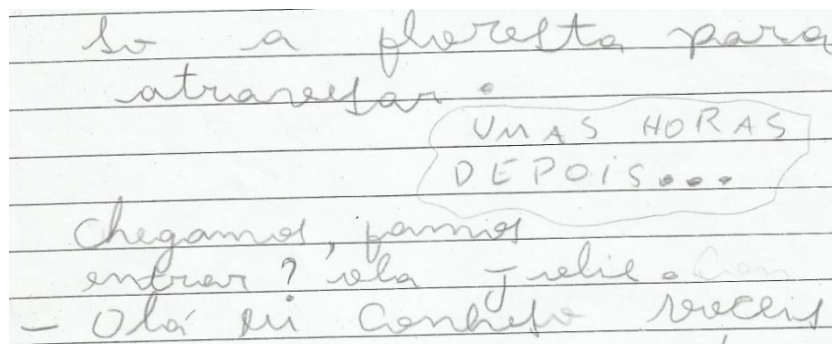 so a floresta para
atravesar.
UMAS HORAS
DEPOIS...
chegamos, famos
entrar? ola Julie.
- Olá eu conheso voceis